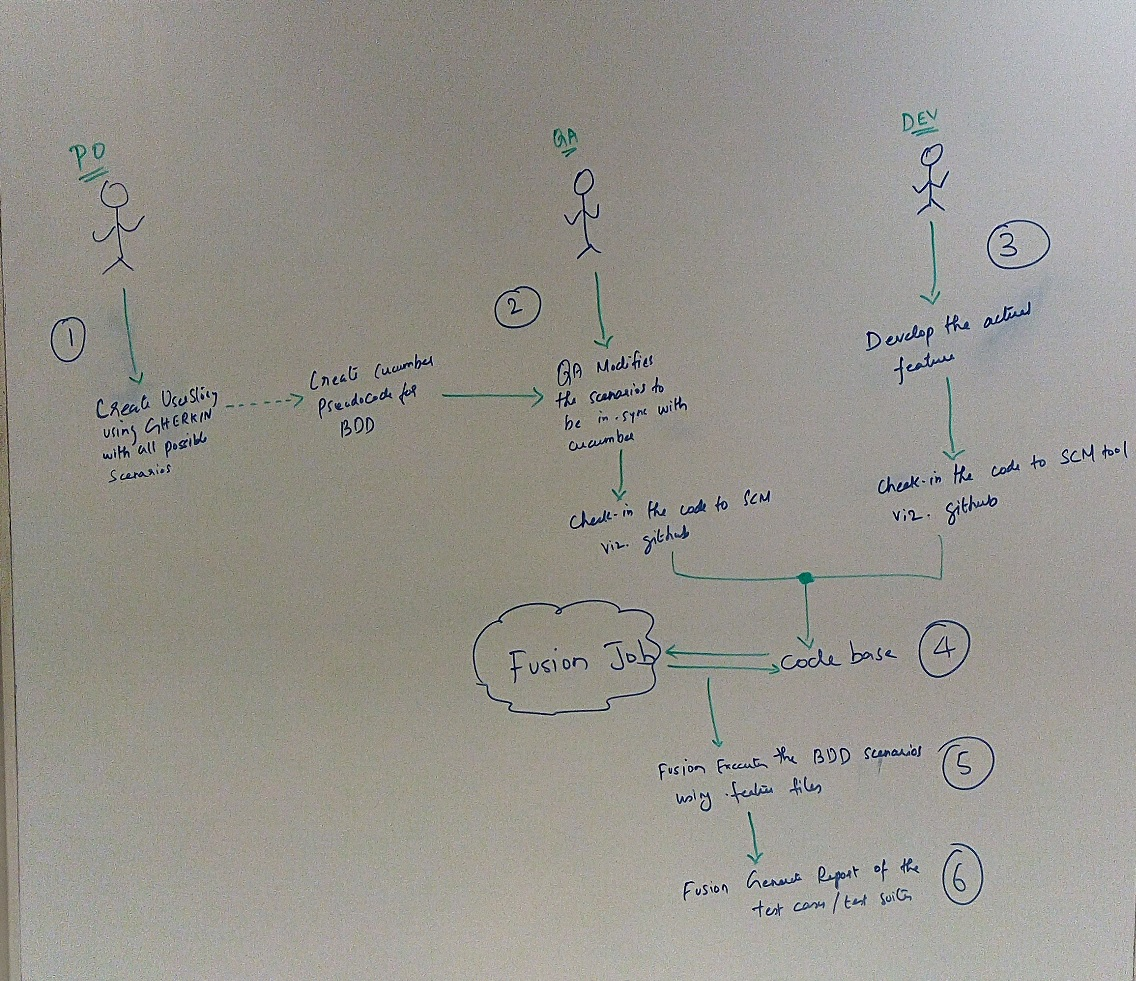 PO
QA
DEV
1
2
3
Create UserStory
using GHERKIN
with all possible
Scenarios
Create Cucumber
Pseudocode for
BDD
QA Modifies
the scenarios to
be in-sync with
cucumber
Check-in the code to SCM
viz. github
Develop the actual
feature
Check-in the code to SCM tool
viz. github
Fusion Job
Code base
4
Fusion Executes the BDD scenarios
using .feature files
5
Fusion Generate Report of the
test cases/test suites
6